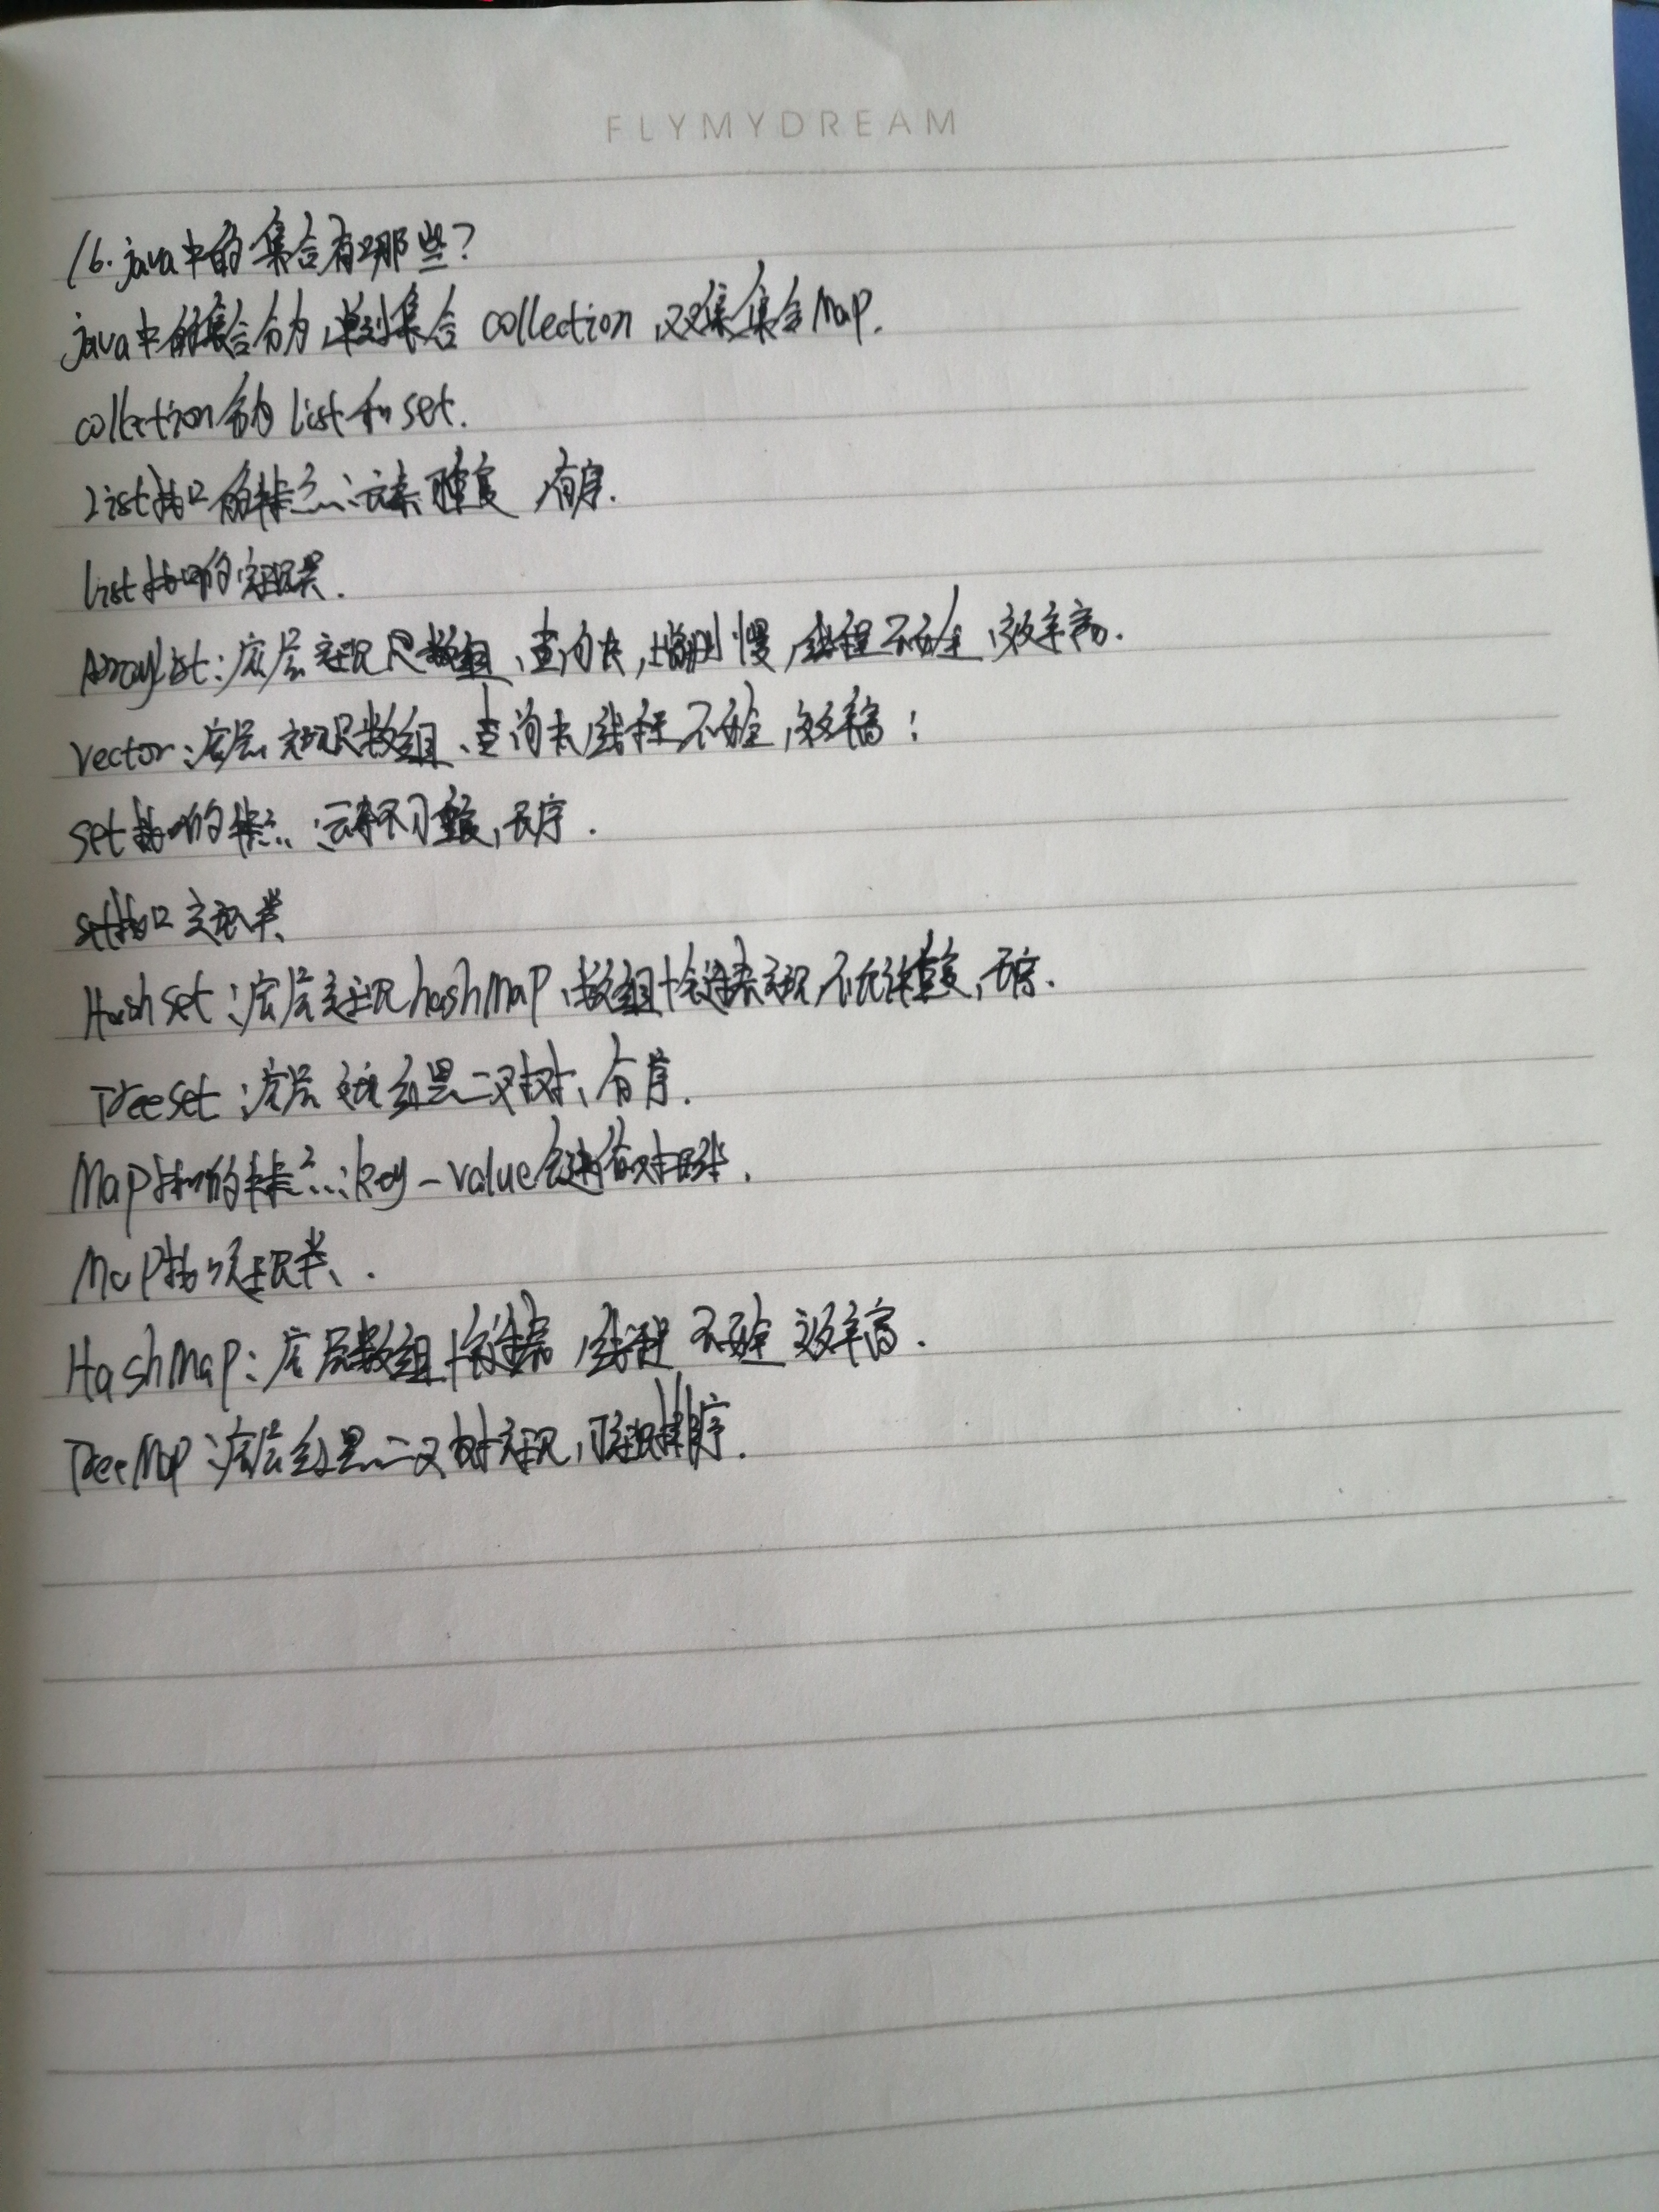 FLYMYDREAM
16. java中的集合有哪些?
java中的集合分为,单列集合 collection,双集集合Map.
collection分为 list和 set.
List接口的特点:元素可重复,有序.
list接口的实现类.
ArrayList:底层实现是数组、查询快,增删慢,线程不安全,效率高.
vector:底层实现是数组、查询快,线程不安全,效率高;
set接口的特点:元素不可重复,无序.
set接口实现类
Hashset:底层实现hashMap,数组+链表实现,不允许重复,无序.
Treeset:底层实现红黑二叉树、有序.
Map接口的特点:key-value键值对形式.
Map接口实现类.
HashMap:底层数组+链表,线程不安全 效率高.
TreeMap:底层红黑二叉树实现,可实现排序.